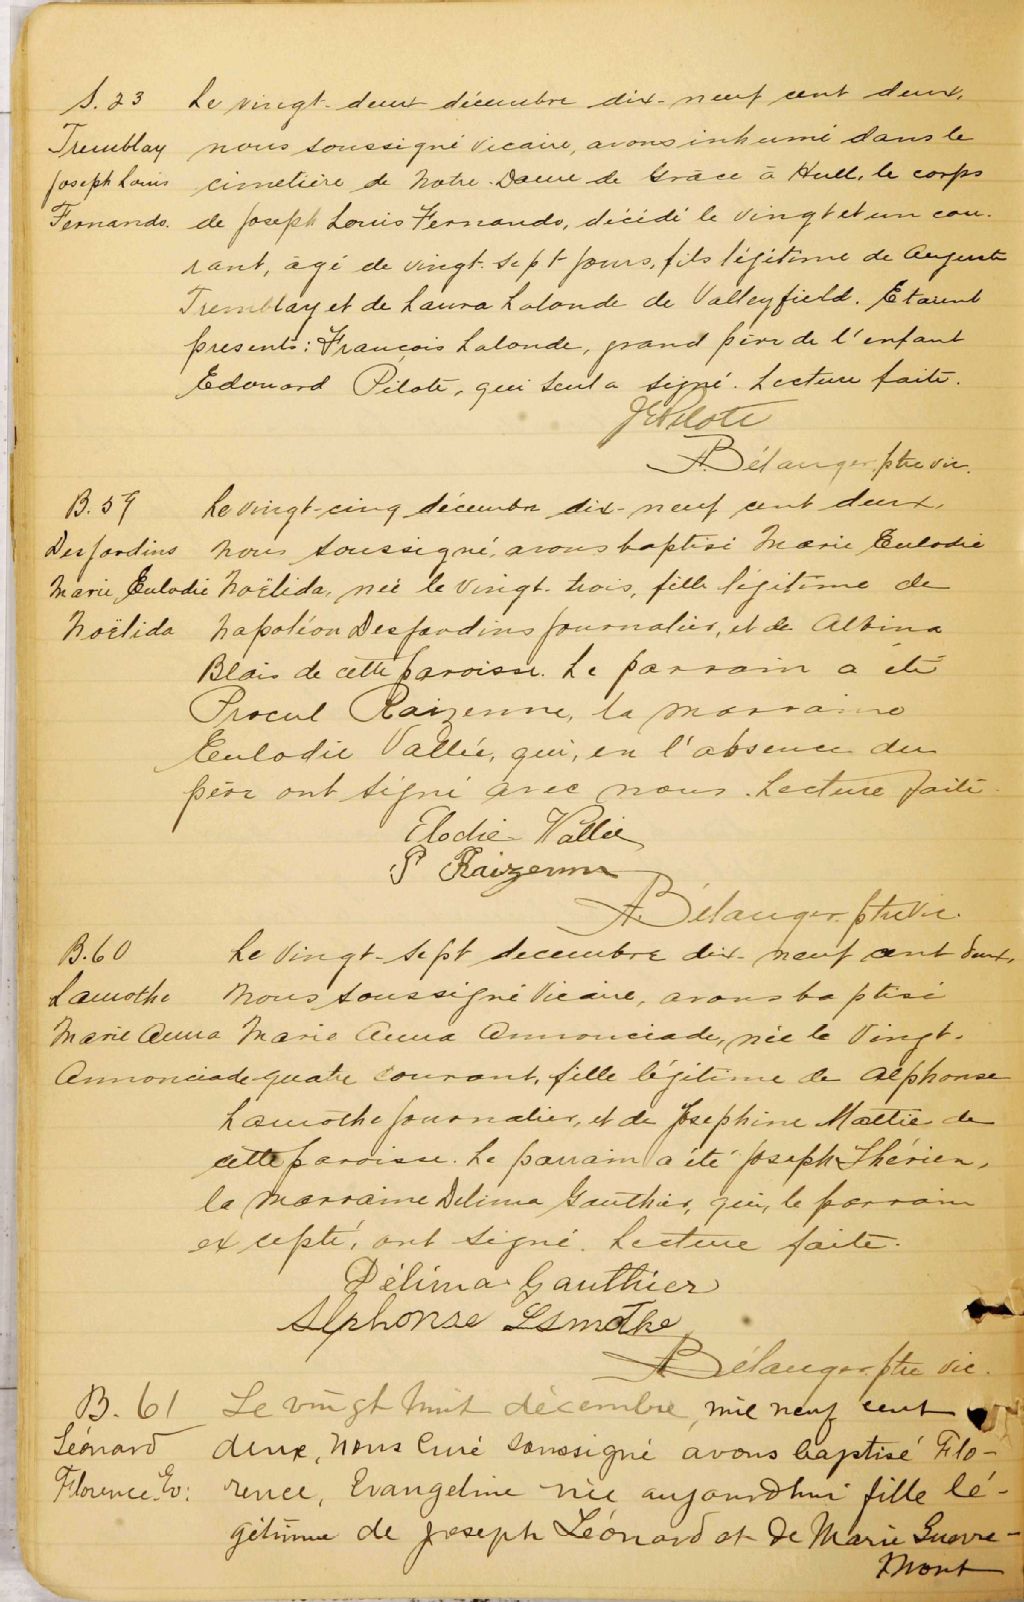 S. 23 Le vingt-deux décembre dix-neuf cent deux,
Tremblay nous soussigné vicaire, avons inhumé dans le
Joseph Louis cimetière de Notre-Dame de Grâce à Hull, le corps
Fernando. de Joseph Louis Fernando, décédé le vingt et un cou-
rant, âgé de vingt-sept jours, fils légitime de Auguste
Tremblay et de Laura Lalonde de Valleyfield. Etaient
présents: François Lalonde, grand père de l'enfant
Edouard Pilote, qui seul a signé. Lecture faite.
JEPilote
A. Bélanger ptre vic.
B. 59 Le vingt-cinq décembre dix-neuf cent deux,
Desjardins nous soussigné, avons baptisé Marie Eulodie
Marie Eulodie Noëlida, née le vingt-trois, fille légitime de
Noëlida Napoléon Desjardins journalier, et de Albina
Blais de cette paroisse. Le parrain a été
Procul Raizenne, la marraine
Eulodie Vallée, qui, en l'absence du
père ont signé avec nous. Lecture faite.
Elodie Vallée
P Raizenne
A. Bélanger ptre vic.
B. 60 Le vingt-sept decembre dix-neuf cent deux,
Lamothe nous soussigné vicaire, avons baptisé
Marie Anna Marie Anna Annonciade, née le vingt-
Annonciade quatre courant, fille légitime de Alphonse
Lamothe journalier, et de Josephine Mattie de
cette paroisse. Le parrain a été Joseph Thérien,
la marraine Delima Gauthier, qui, le parrain
excepté, ont signé. Lecture faite.
Délima Gauthier
Alphonse Lamothe
A. Bélanger ptre vic.
B. 61 Le vingt huit décembre, mil neuf cent
Léonard deux, nous Curé soussigné avons baptisé Flo-
Florence Ev: rence, Evangeline née aujourdhui fille lé-
gitime de Joseph Léonard et de Marie Guèvre-
mont